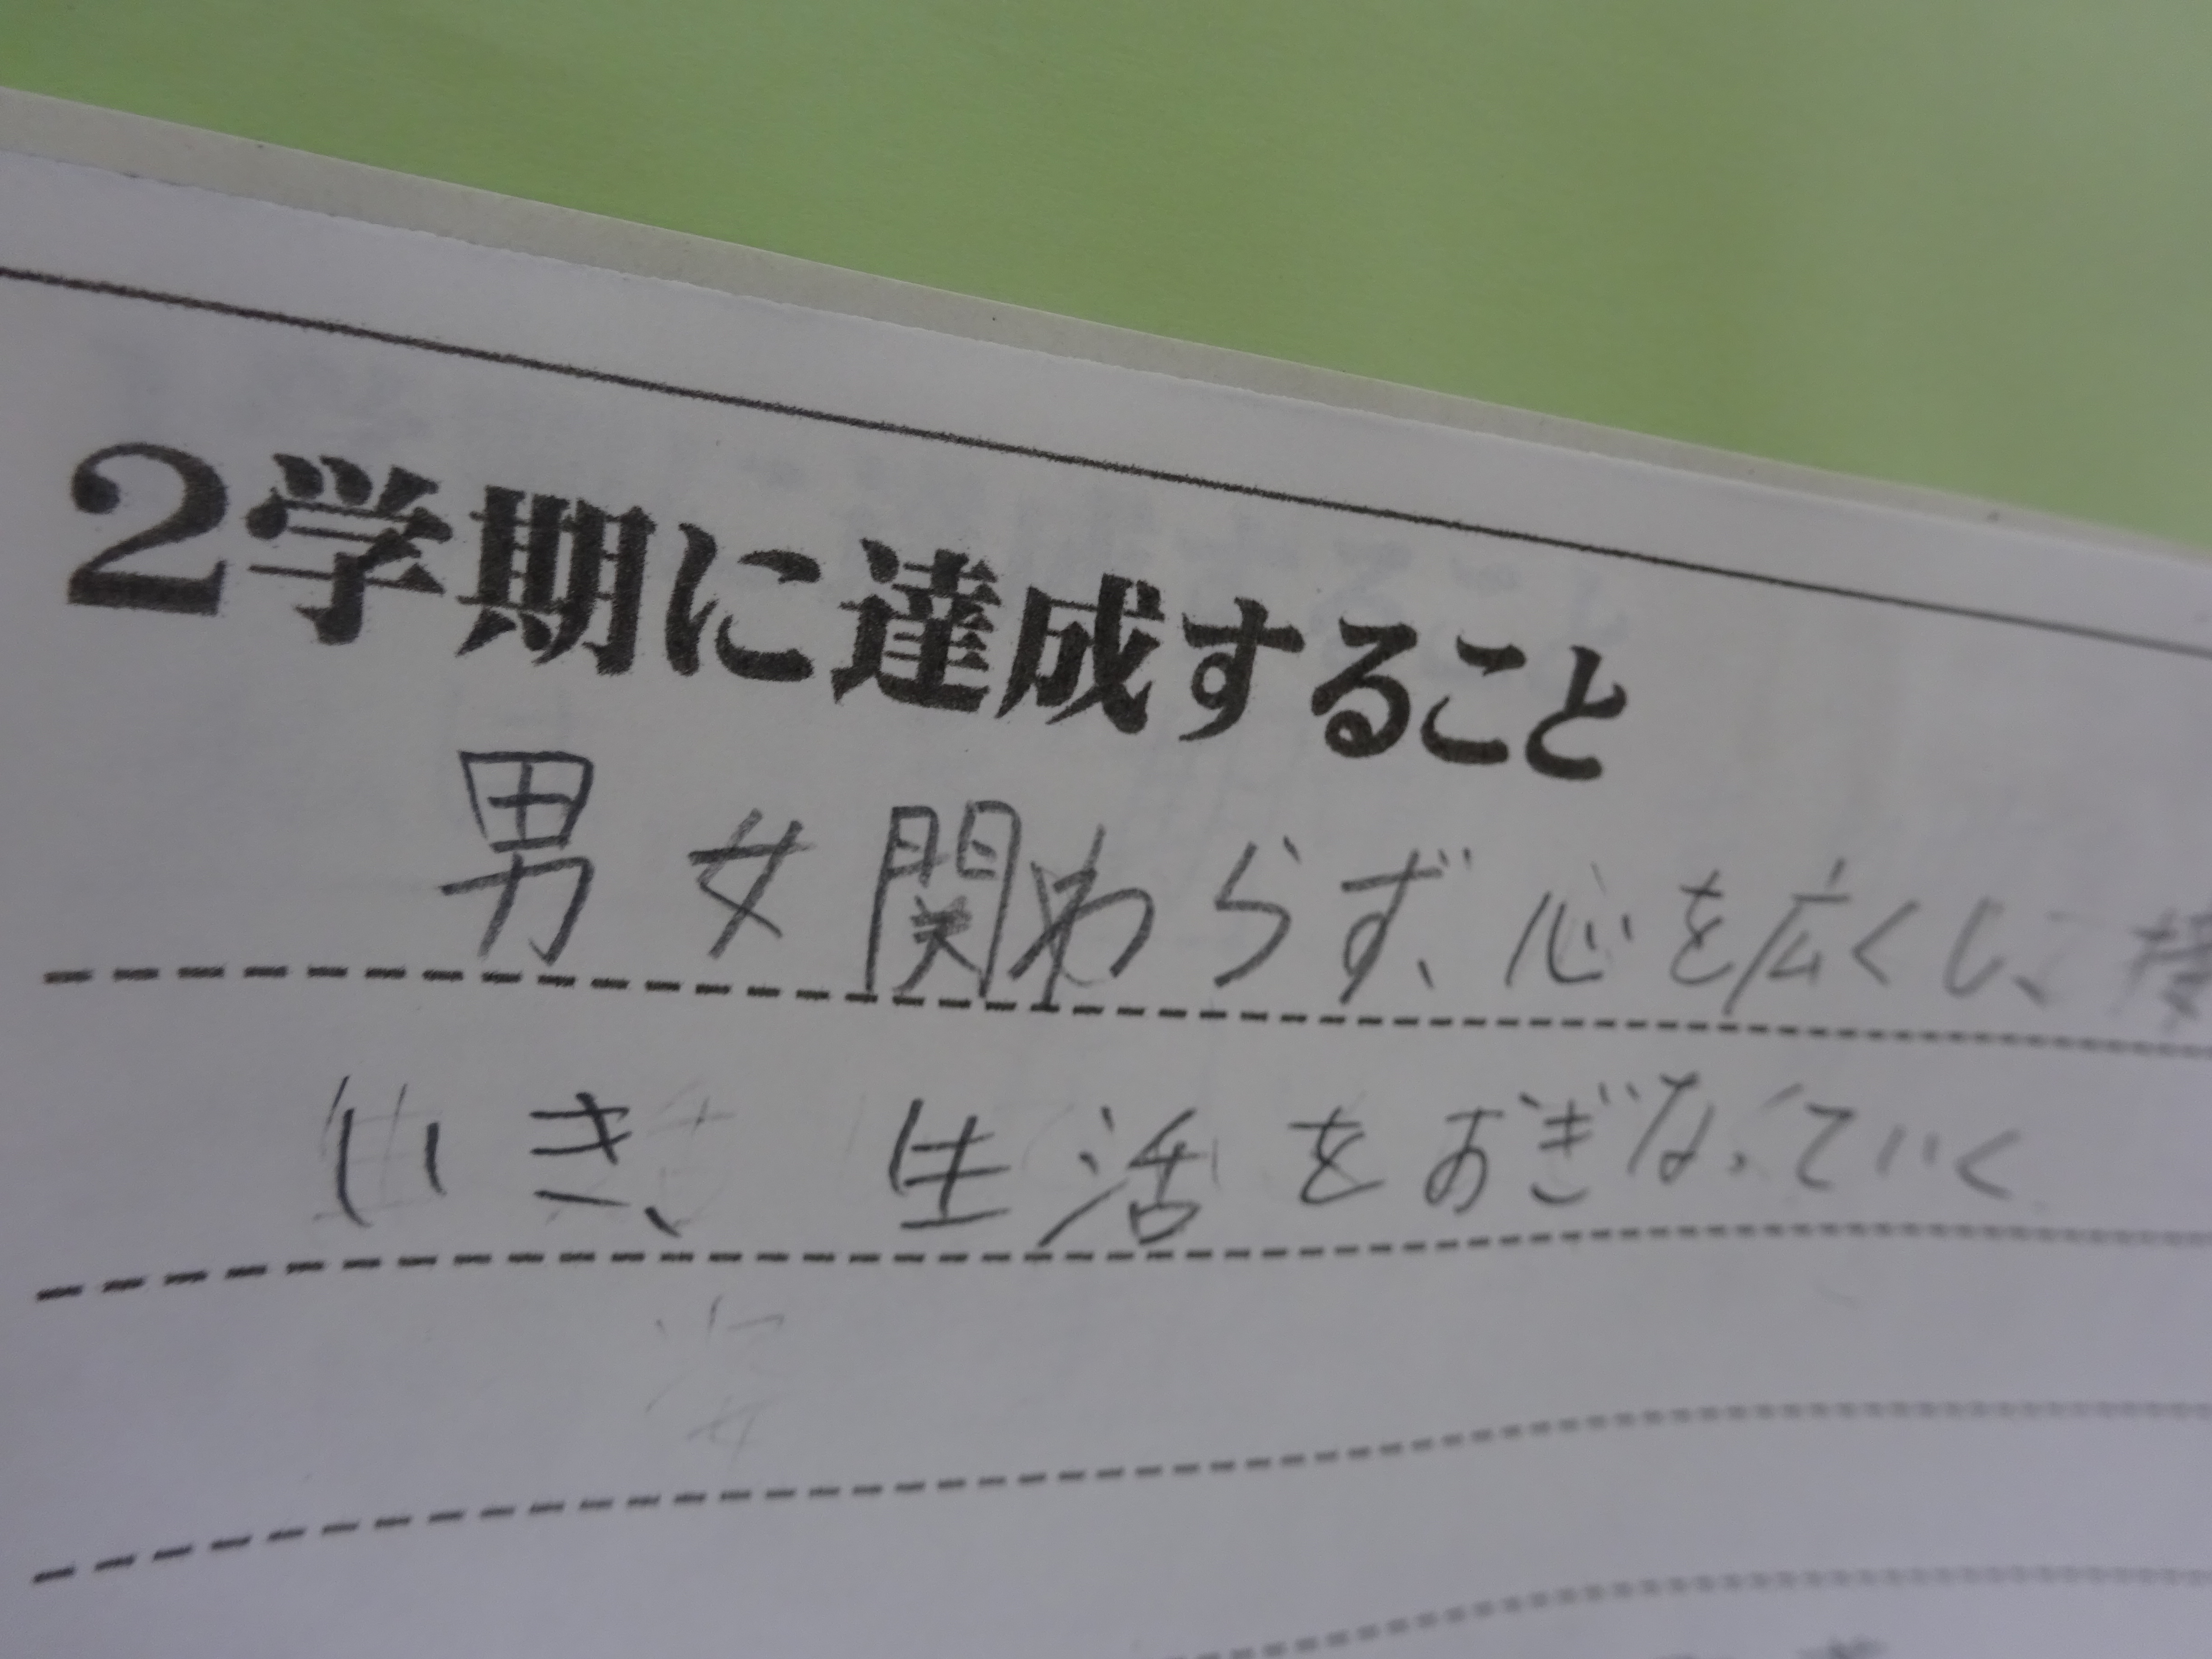 2学期に達成すること
男女関わらず、心を広くし、接
いき、生活をおぎなっていく